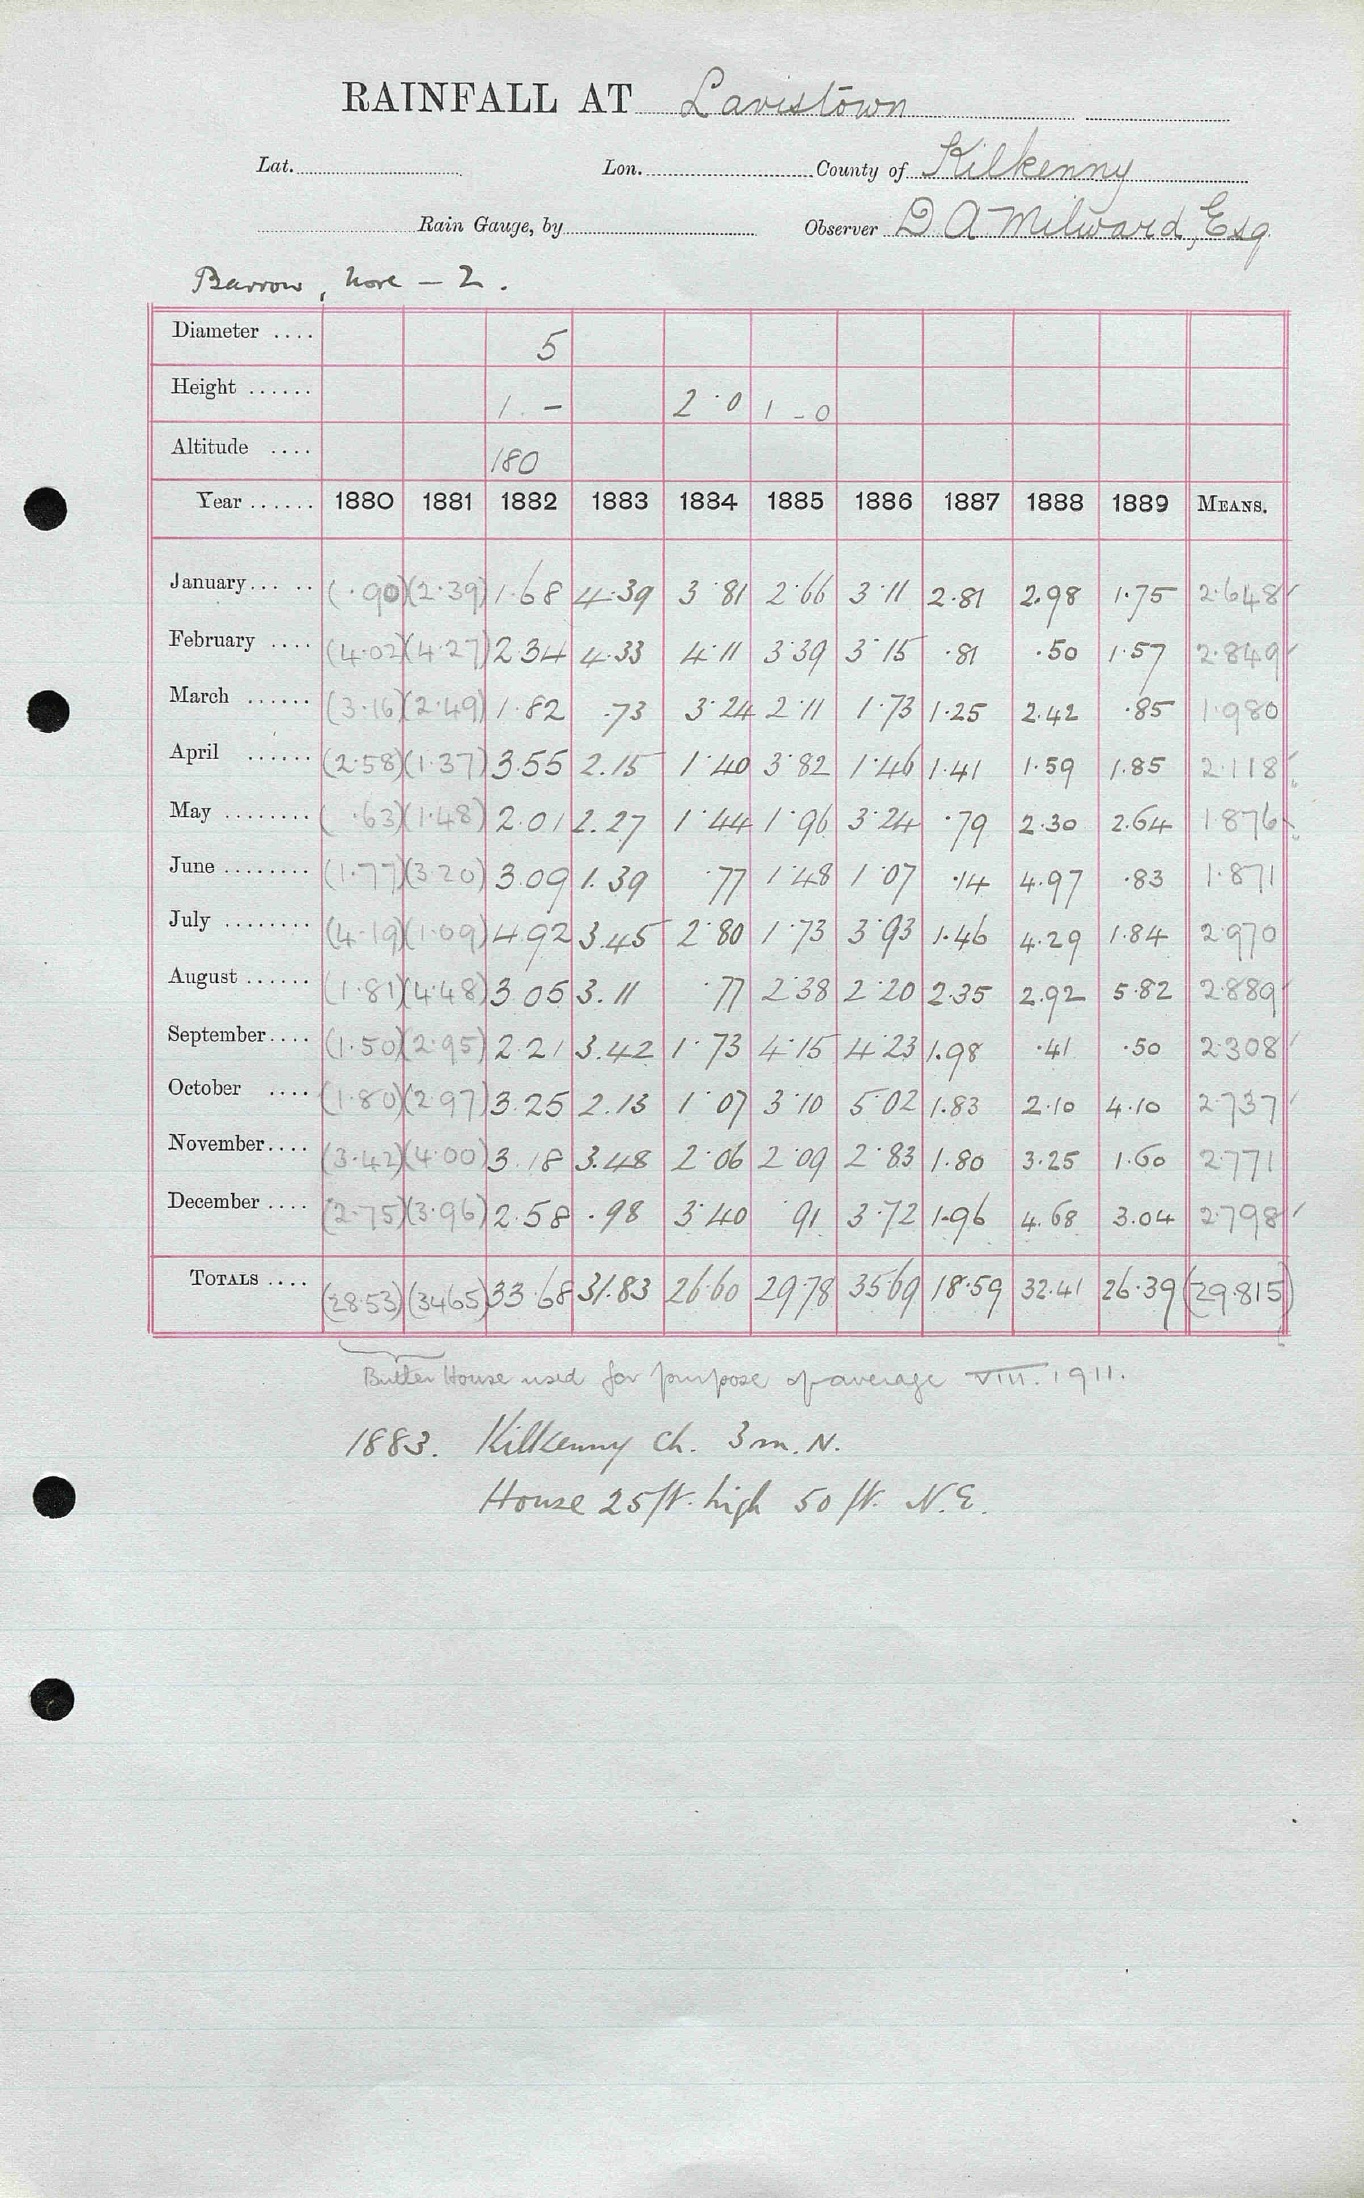 RAINFALL AT Lavistown
Lat. Lon. County of Kilkenny
Rain Gauge, by Observer D A Milward, Esq
Barrow, Nore – 2.
Diameter .... 5
Height ...... 1. – 2·0 1 – 0
Altitude .... 180
Year ...... 1880 1881 1882 1883 1884 1885 1886 1887 1888 1889 MEANS.
January... .. (·90) (2·39) 1·68 4·39 3·81 2·66 3·11 2·81 2·98 1·75 2·648
February .... (4·02) (4·27) 2·34 4·33 4·11 3·39 3·15 ·81 ·50 1·57 2·849
March ...... (3·16) (2·49) 1·82 ·73 3·24 2·11 1·73 1·25 2·42 ·85 1·980
April ...... (2·58) (1·37) 3·55 2·15 1·40 3·82 1·46 1·41 1·59 1·85 2·118
May ........ (·63) (1·48) 2·01 2·27 1·44 1·96 3·24 ·79 2·30 2·64 1·876
June ........ (1·77) (3·20) 3·09 1·39 ·77 1·48 1·07 ·14 4·97 ·83 1·871
July ........ (4·19) (1·09) 4·92 3·45 2·80 1·73 3·93 1·46 4·29 1·84 2·970
August ...... (1·81) (4·48) 3·05 3·11 ·77 2·38 2·20 2·35 2·92 5·82 2·889
September.... (1·50) (2·95) 2·21 3·42 1·73 4·15 4·23 1·98 ·41 ·50 2·308
October .... (1·80) (2·97) 3·25 2·13 1·07 3·10 5·02 1·83 2·10 4·10 2·737
November.... (3·42) (4·00) 3·18 3·48 2·06 2·09 2·83 1·80 3·25 1·60 2·771
December .... (2·75) (3·96) 2·58 ·98 3·40 ·91 3·72 1·96 4·68 3·04 2·798
TOTALS .... (28·53) (34·65) 33·68 31·83 26·60 29·78 35·69 18·59 32·41 26·39 (29·815)
Butler House used for purpose of average VIII. 1911.
1883. Kilkenny Ch. 3 m. N.
House 25 ft. high 50 ft. N.E.